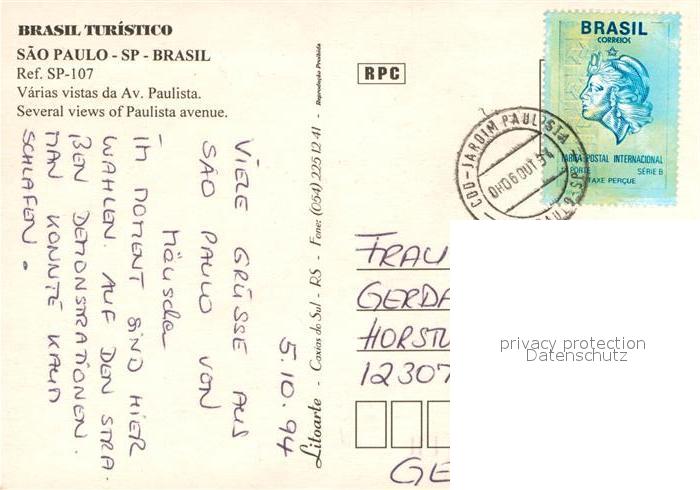 BRASIL TURÍSTICO
SÃO PAULO - SP - BRASIL
Ref. SP-107
Várias vistas da Av. Paulista.
Several views of Paulista avenue.
5.10.94
VIELE GRÜSSE AUS
SÃO PAULO VON
Mäusda
IM MOMENT SIND HIER
WAHLEN. AUF DEN STRA-
ßEN DEMONSTRATIONEN.
MAN KONNTE KAUM
SCHLAFEN.
Litoarte - Caxias do Sul - RS - Fone: (054) 225 12 41 - Reprodução Proibida
RPC
BRASIL
CORREIOS
TARIFA POSTAL INTERNACIONAL
1º PORTE SÉRIE B
TAXE PERÇUE
COD-JARDIM PAULISTA
06 OUT 94
PAULO-SP
FRAU
GERDA
HORST
12307
GE
privacy protection
Datenschutz